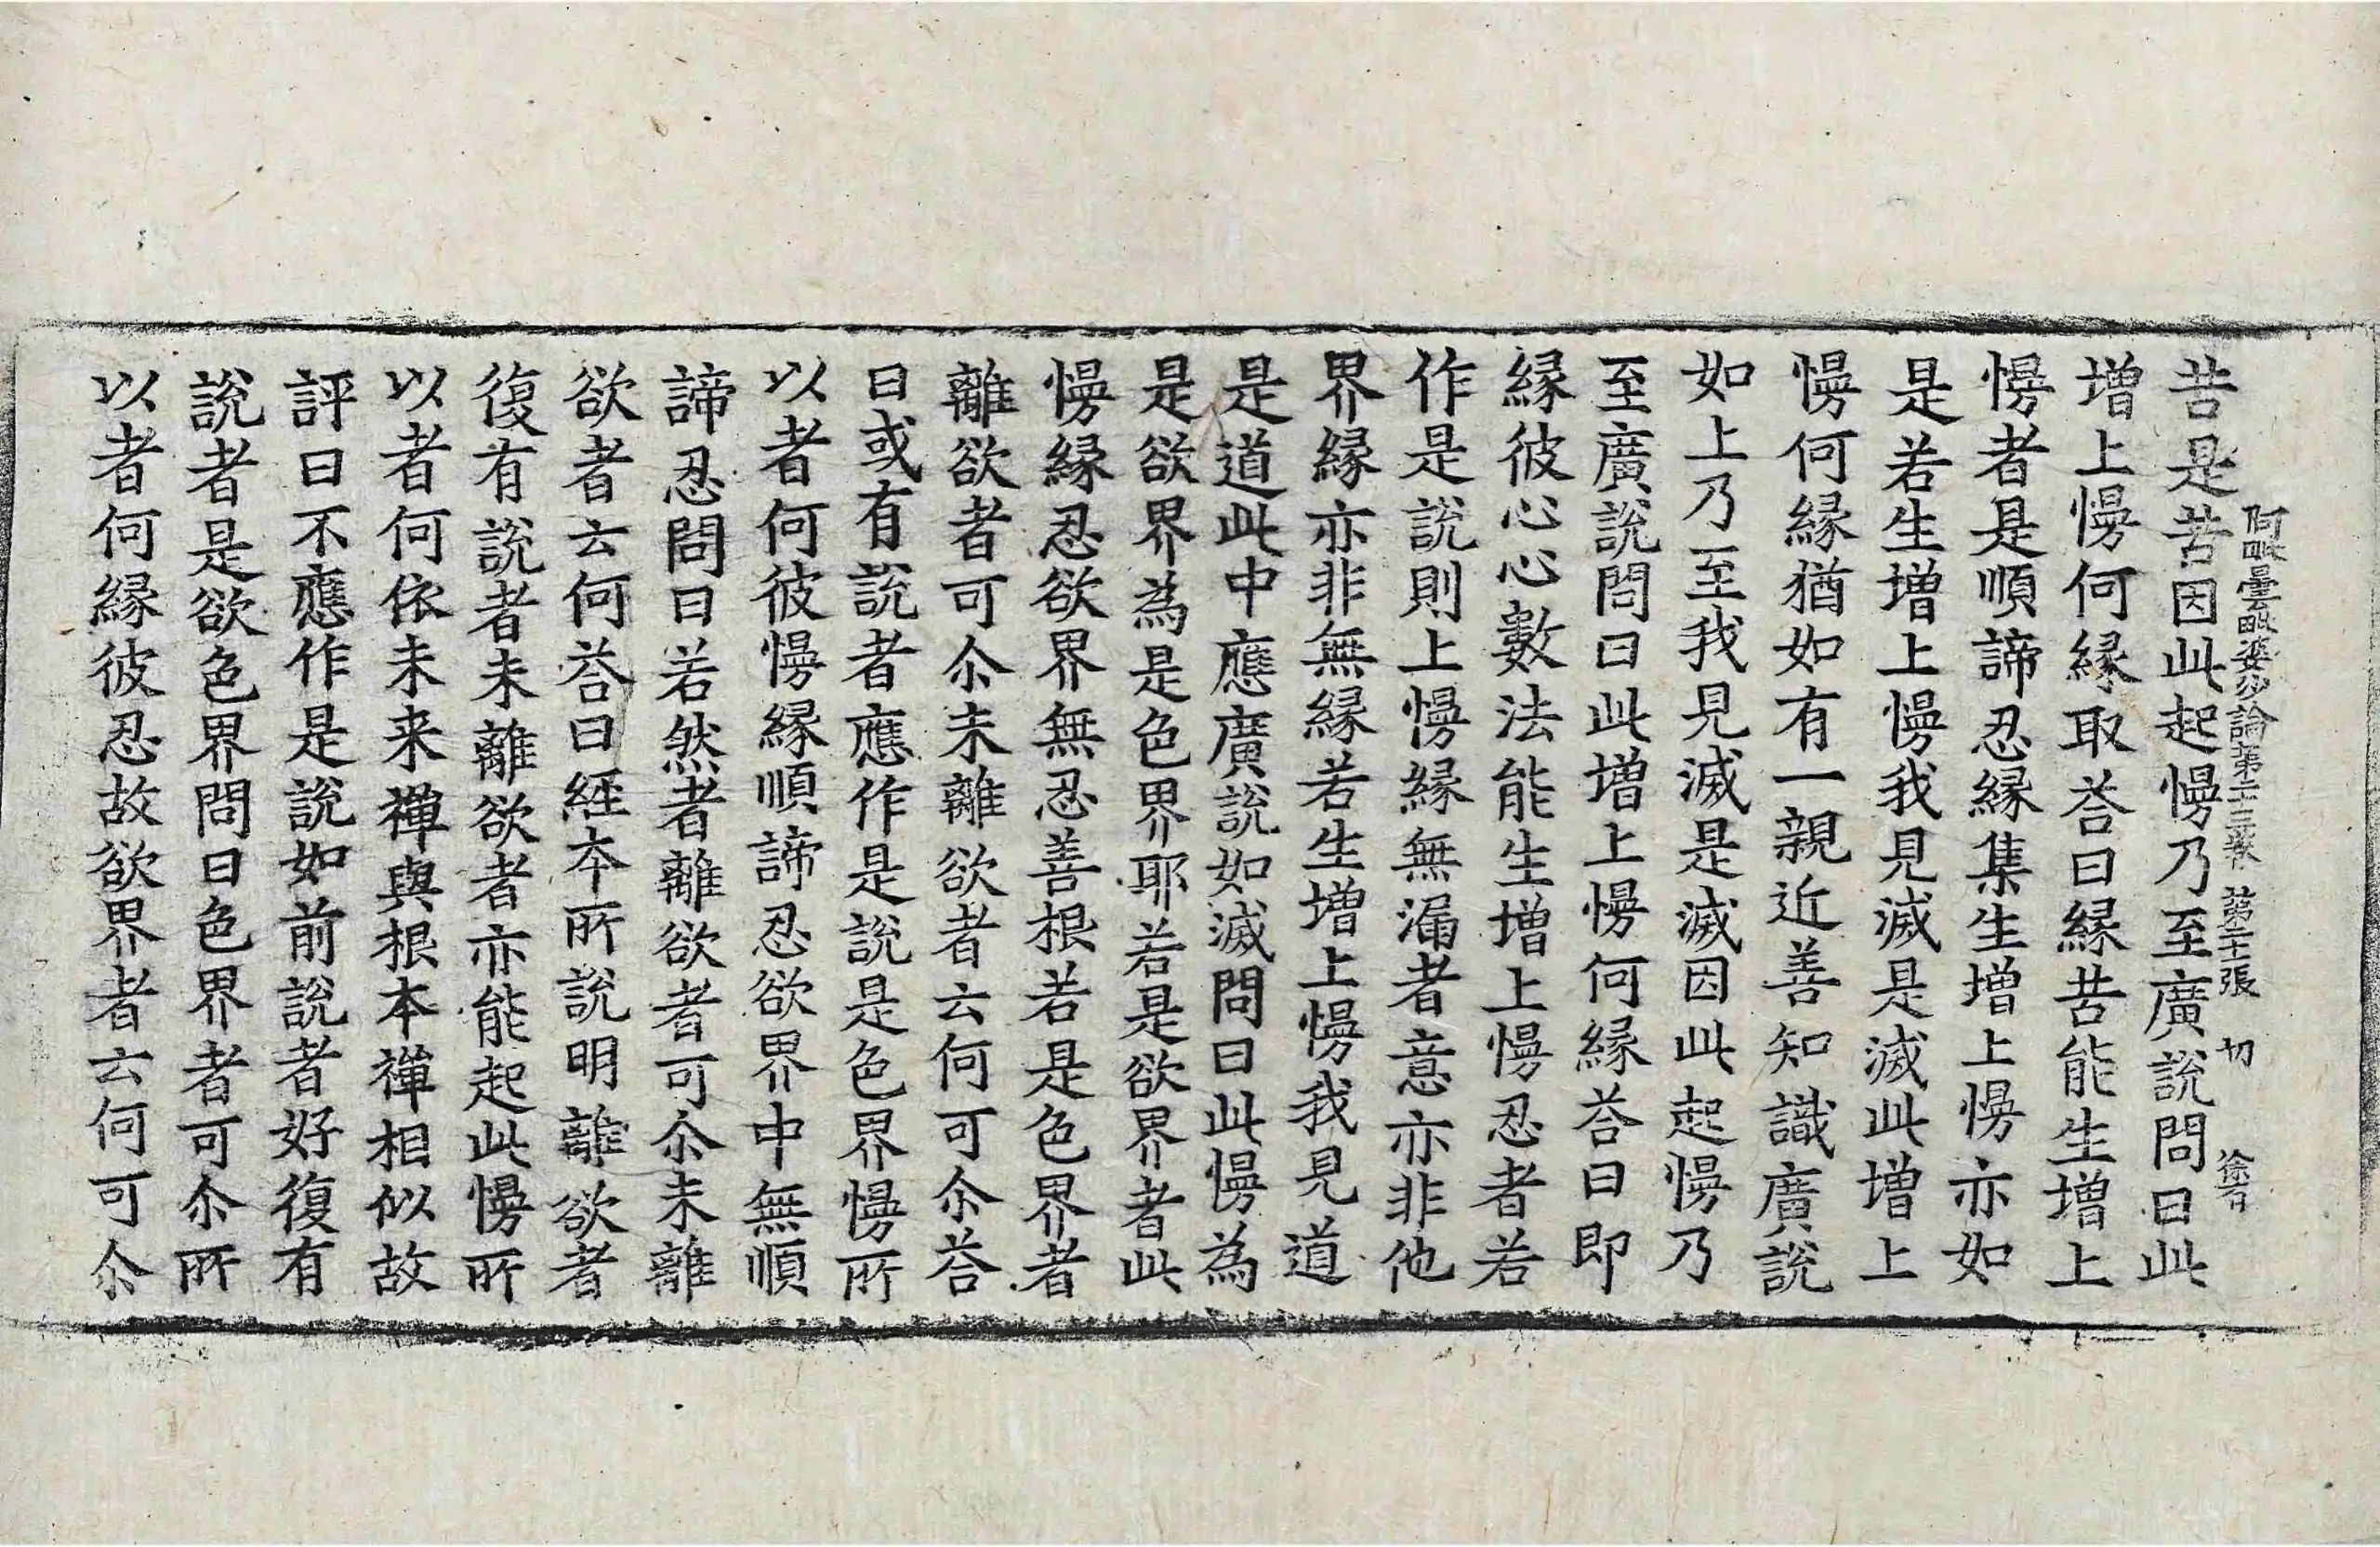 苦是苦因此起慢乃至廣說問曰此
阿毗曇毗婆沙論第二十三卷 第二十張 切
增上慢何縁取荅曰縁苦能生增上
慢者是順諦忍縁集生增上慢亦如
是若生增上慢我見滅是滅此增上
慢何縁猶如有一親近善知識廣說
如上乃至我見滅是滅因此起慢乃
至廣說問曰此增上慢何縁荅曰即
縁彼心心數法能生增上慢忍者若
作是說則上慢縁無漏者意亦非他
界縁亦非無縁若生增上慢我見道
是道此中應廣說如滅問曰此慢為
是欲界為是色界耶若是欲界者此
慢縁忍欲界無忍善根若是色界者
離欲者可尒未離欲者云何可尒荅
曰或有說者應作是說是色界慢所
以者何彼慢縁順諦忍欲界中無順
諦忍問曰若然者離欲者可尒未離
欲者云何荅曰經夲所說明離欲者
復有說者未離欲者亦能起此慢所
以者何依未来禪與根本禪相似故
評曰不應作是說如前說者好復有
說者是欲色界問曰色界者可尒所
以者何縁彼忍故欲界者云何可尒